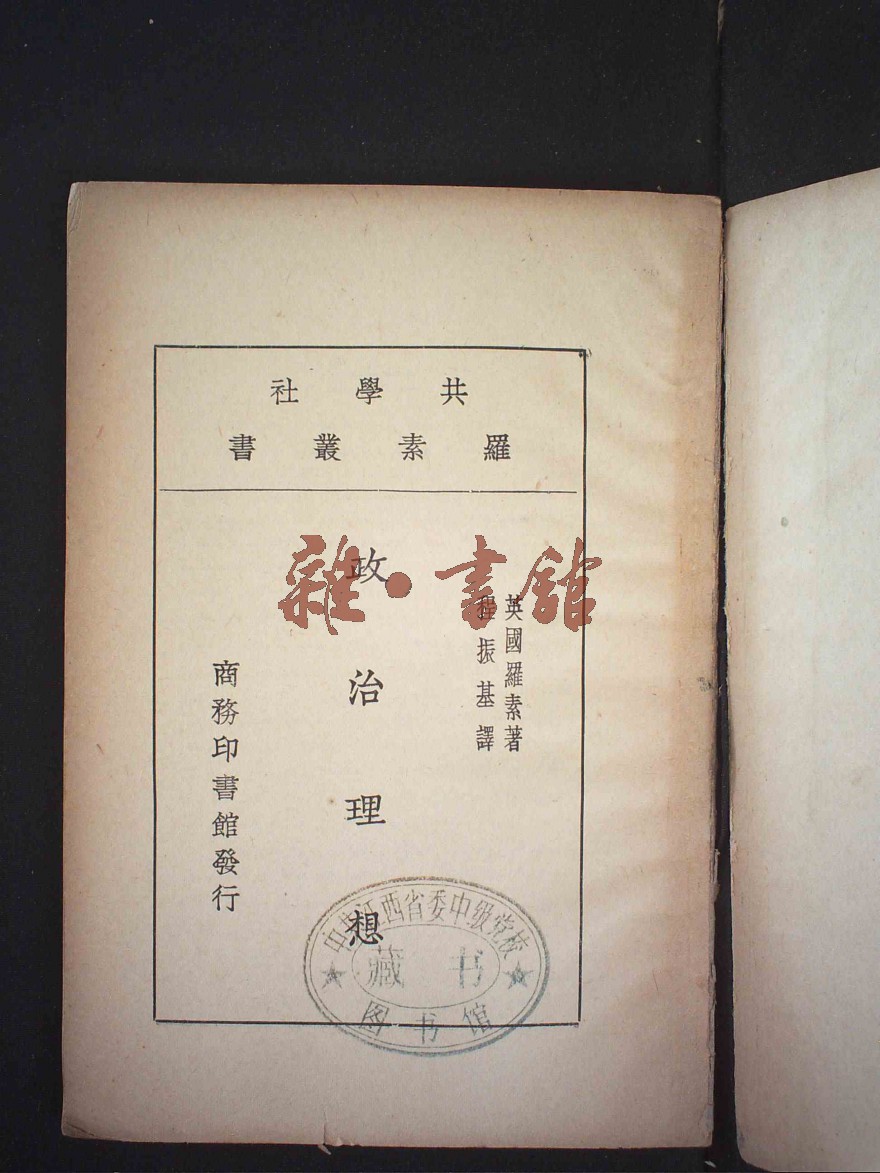 共學社
羅素叢書
英國羅素著
程振基譯
政治理想
商務印書館發行
雜·書館
中共江西省委中级党校
藏书
图书馆